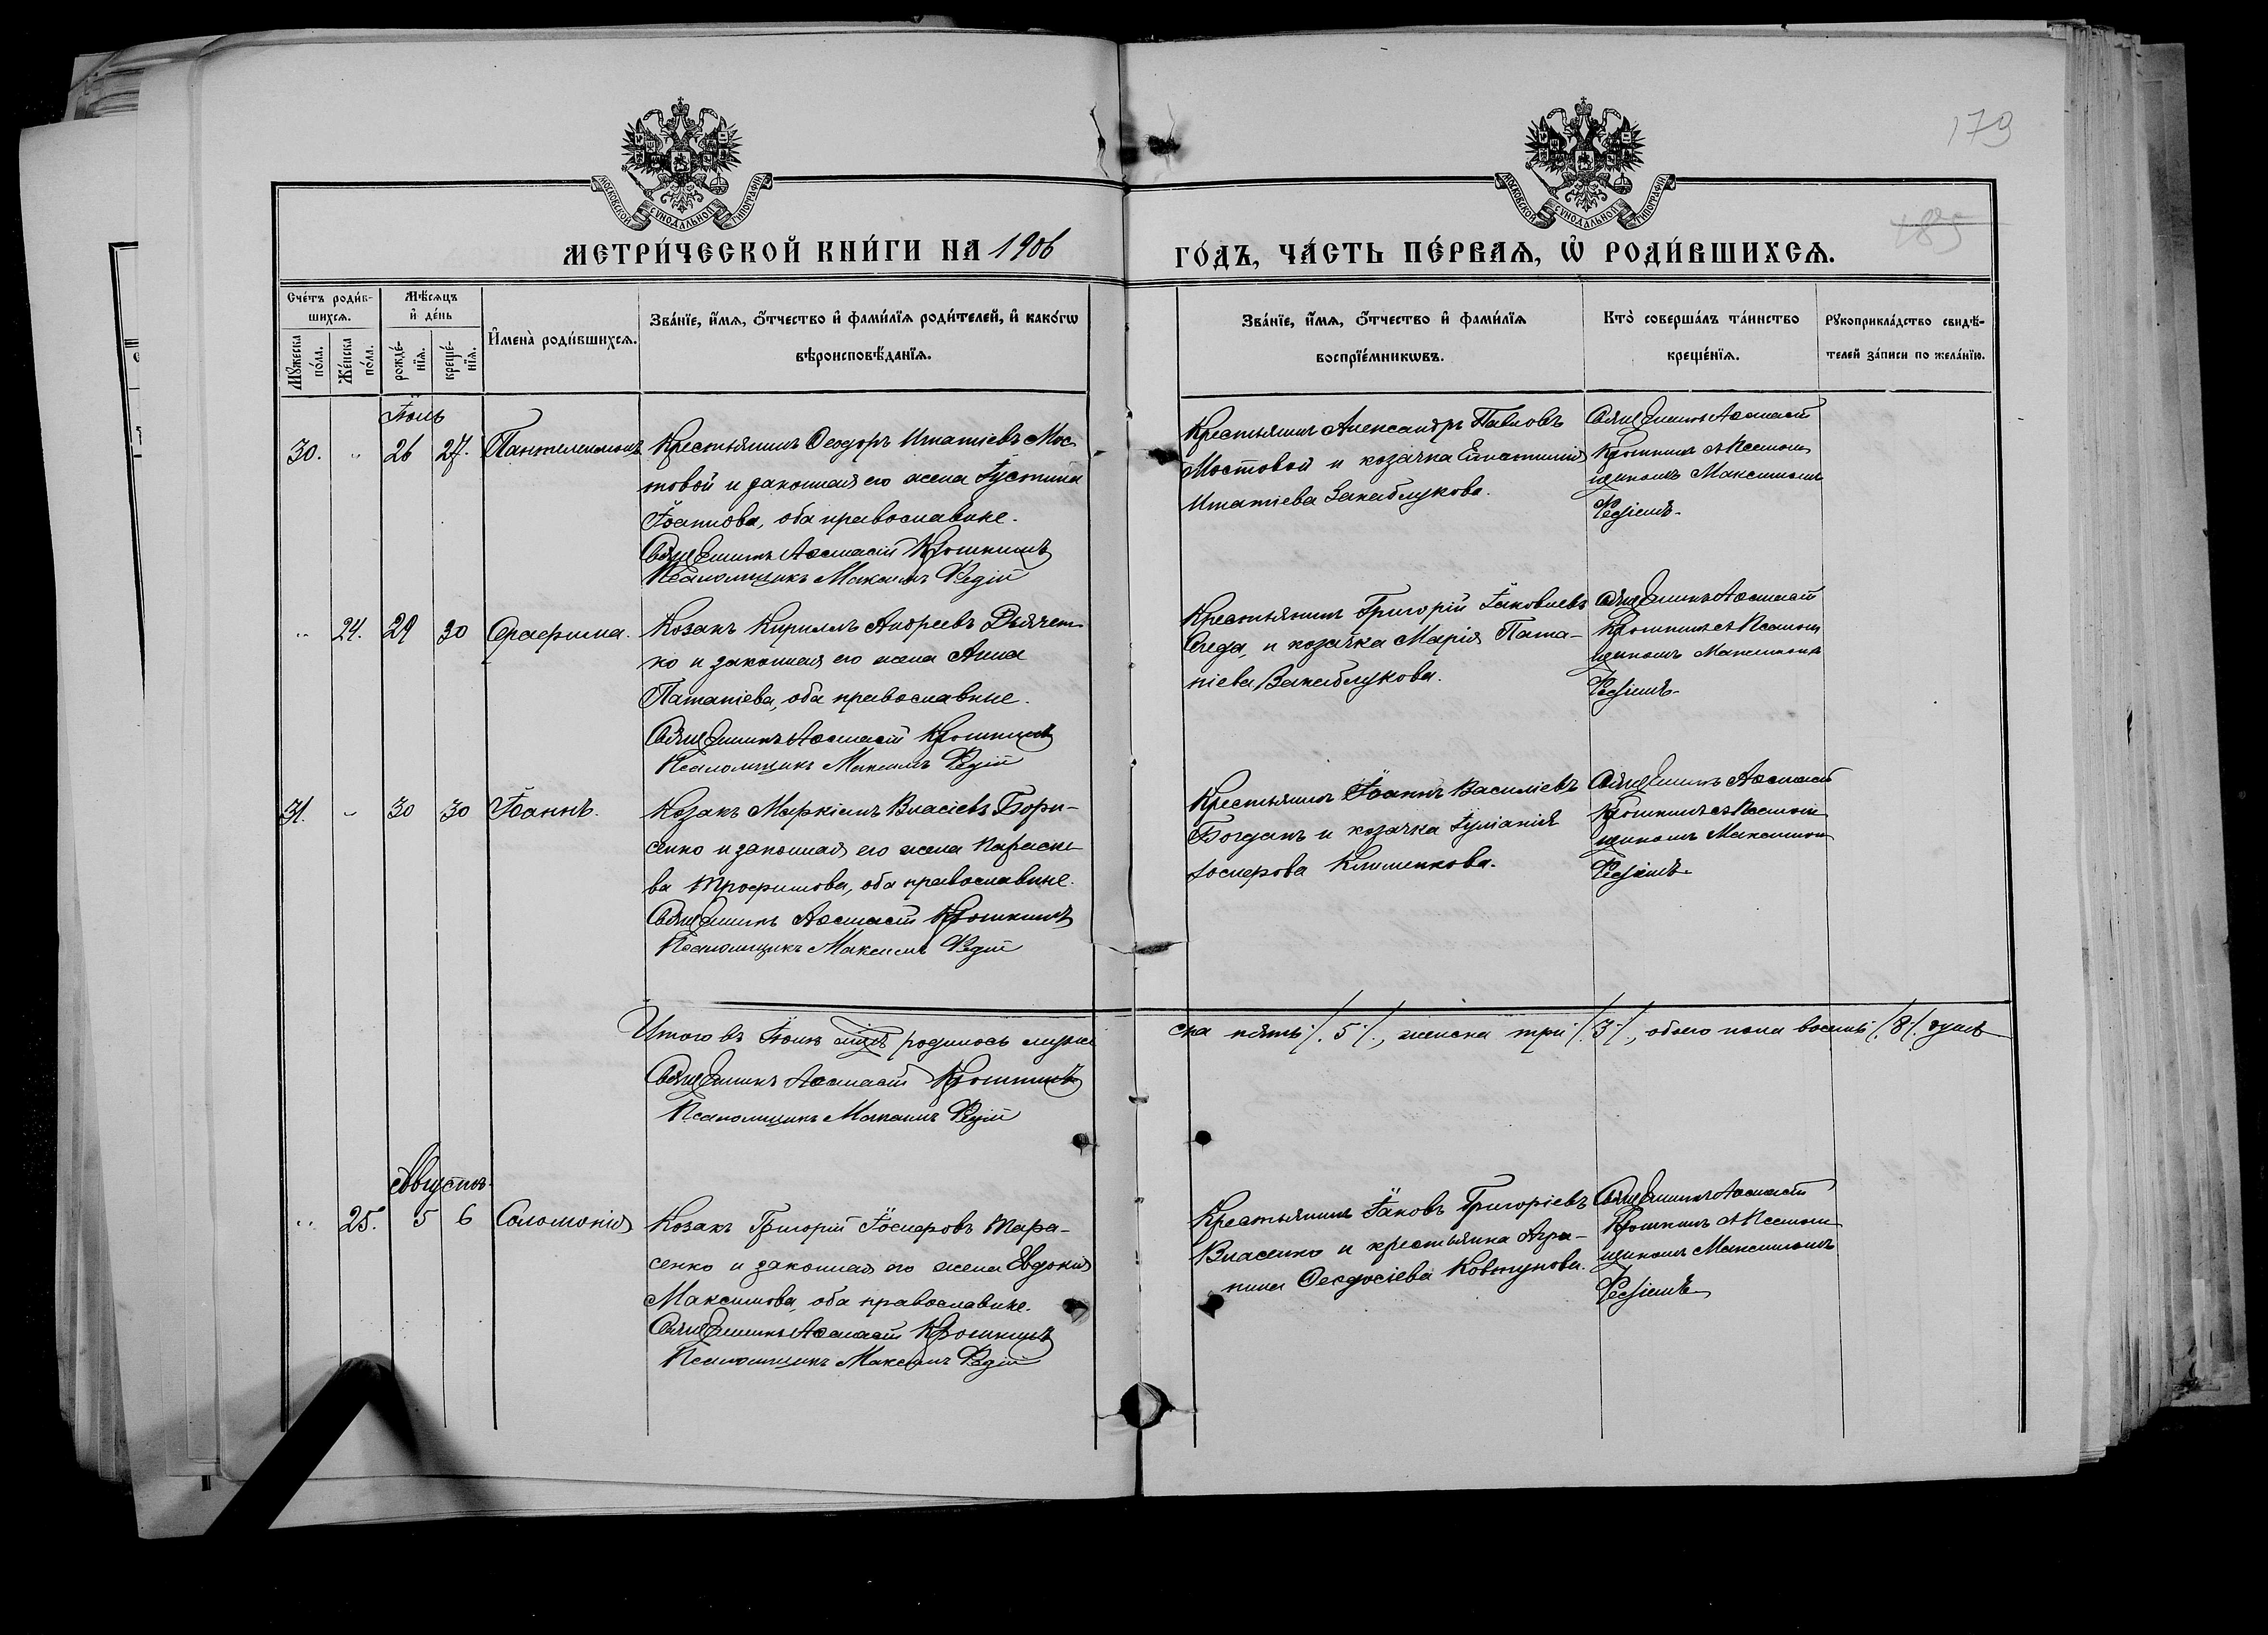 179
185
МОСКОВСКОЙ СѴНОДАЛЬНОЙ ТИПОГРАФІИ
МОСКОВСКОЙ СѴНОДАЛЬНОЙ ТИПОГРАФІИ
МЕТРИ́ЧЕСКОЙ КНИ́ГИ НА 1906
ГО́ДЪ, ЧА́СТЬ ПЕ́РВАѦ, Ѡ҆ РОДИ́ВШИХСѦ.
Сче́тъ роди́в-
шихсѧ.
Мꙋ́жеска
по́ла.
Же́нска
по́ла.
Мѣ́сѧцъ
и҆ де́нь
рожде́-
нїѧ.
креще́-
нїѧ.
И҆мена̀ роди́вшихсѧ.
Зва́нїе, и҆́мѧ, ѻ҆́тчество и҆ фами́лїѧ роди́телей, и҆ како́гѡ
вѣроисповѣ́данїѧ.
Зва́нїе, и҆́мѧ, ѻ҆́тчество и҆ фами́лїѧ
воспрїе́мникѡвъ.
Кто̀ соверша́лъ та́инство
креще́нїѧ.
Рꙋкоприкла́дство свидѣ́-
телей за́писи по жела́нїю.
Іюль
30. " 26 27. Пантелеимонъ
Крестьянинъ Ѳеодоръ Игнатіевъ Мос-
товой и законная его жена Іустина
Іоаннова, оба православные.
Священникъ Аѳанасій
Псаломщикъ Максимъ Редій
Крестьянинъ Александръ Павловъ
Мостовой и козачка
Игнатіева Закаблукова.
Священникъ Аѳанасій
съ Псалом-
щикомъ Максимомъ
Редіемъ.
" 24. 29 30 Серафима.
Козакъ Кириллъ Андреевъ Дьячен-
ко и законная его жена Анна
Патапіева, оба православные.
Священникъ Аѳанасій
Псаломщикъ Максимъ Редій
Крестьянинъ Григорій Іаковлевъ
и козачка Марія Пата-
піева Закаблукова.
Священникъ Аѳанасій
съ Псалом-
щикомъ Максимомъ
Редіемъ.
31. " 30 30 Іоаннъ.
Козакъ Маркіанъ Власіевъ Бори-
сенко и законная его жена Параске-
ва Трофимова, оба православные.
Священникъ Аѳанасій
Псаломщикъ Максимъ Редій
Крестьянинъ Іоаннъ Василіевъ
Богданъ и козачка Іуліанія
Іосифова Клименкова.
Священникъ Аѳанасій
съ Псалом-
щикомъ Максимом
Редіемъ.
Итого въ Іюлѣ мцѣ родилось муже
ска пять /.5./, женска три /.3./, обоего пола восемь /.8./ душъ
Священникъ Аѳанасій
Псаломщикъ Максимъ Редій
Августъ.
" 25. 5 6 Соломонія
Козакъ Григорій Іосифовъ Тара-
сенко и законная его жена Евдокія
Максимова, оба православные.
Священникъ Аѳанасій
Псаломщикъ Максимъ Редій
Крестьянинъ Іаковъ Григоріевъ
Власенко и крестьянка Агри-
пина Ѳеодосіева Ковтунова.
Священникъ Аѳанасій
съ Псалом-
щикомъ Максимомъ
Редіемъ